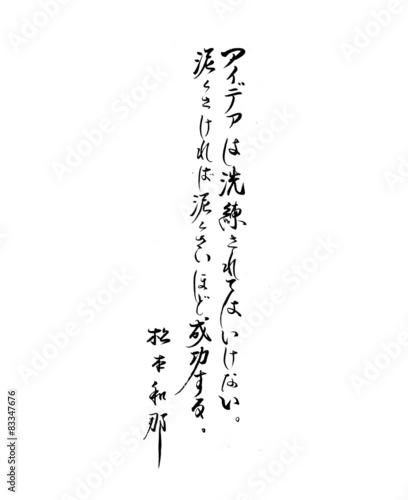 アイデアは洗練されてはいけない。
泥くさければ泥くさいほど成功する。
松本和那
Adobe Stock | #83347676